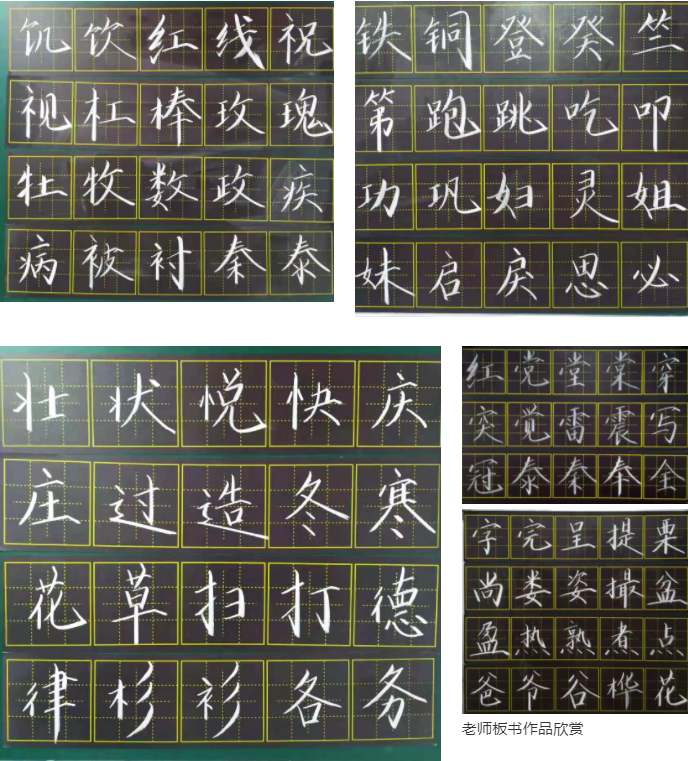 饥饮红线祝
视杠棒玫瑰
牡牧数政疾
病被衬秦泰
铁铜登癸竺
第跑跳吃叩
功巩妇灵姐
妹启戾思必
壮状悦快庆
庄过造冬寒
花草扫打德
律杉衫各务
红党堂棠穿
突觉雷震写
冠泰秦奉全
字完呈提栗
尚娄姿撮盆
盈热熟煮点
爸爷谷桦花
老师板书作品欣赏